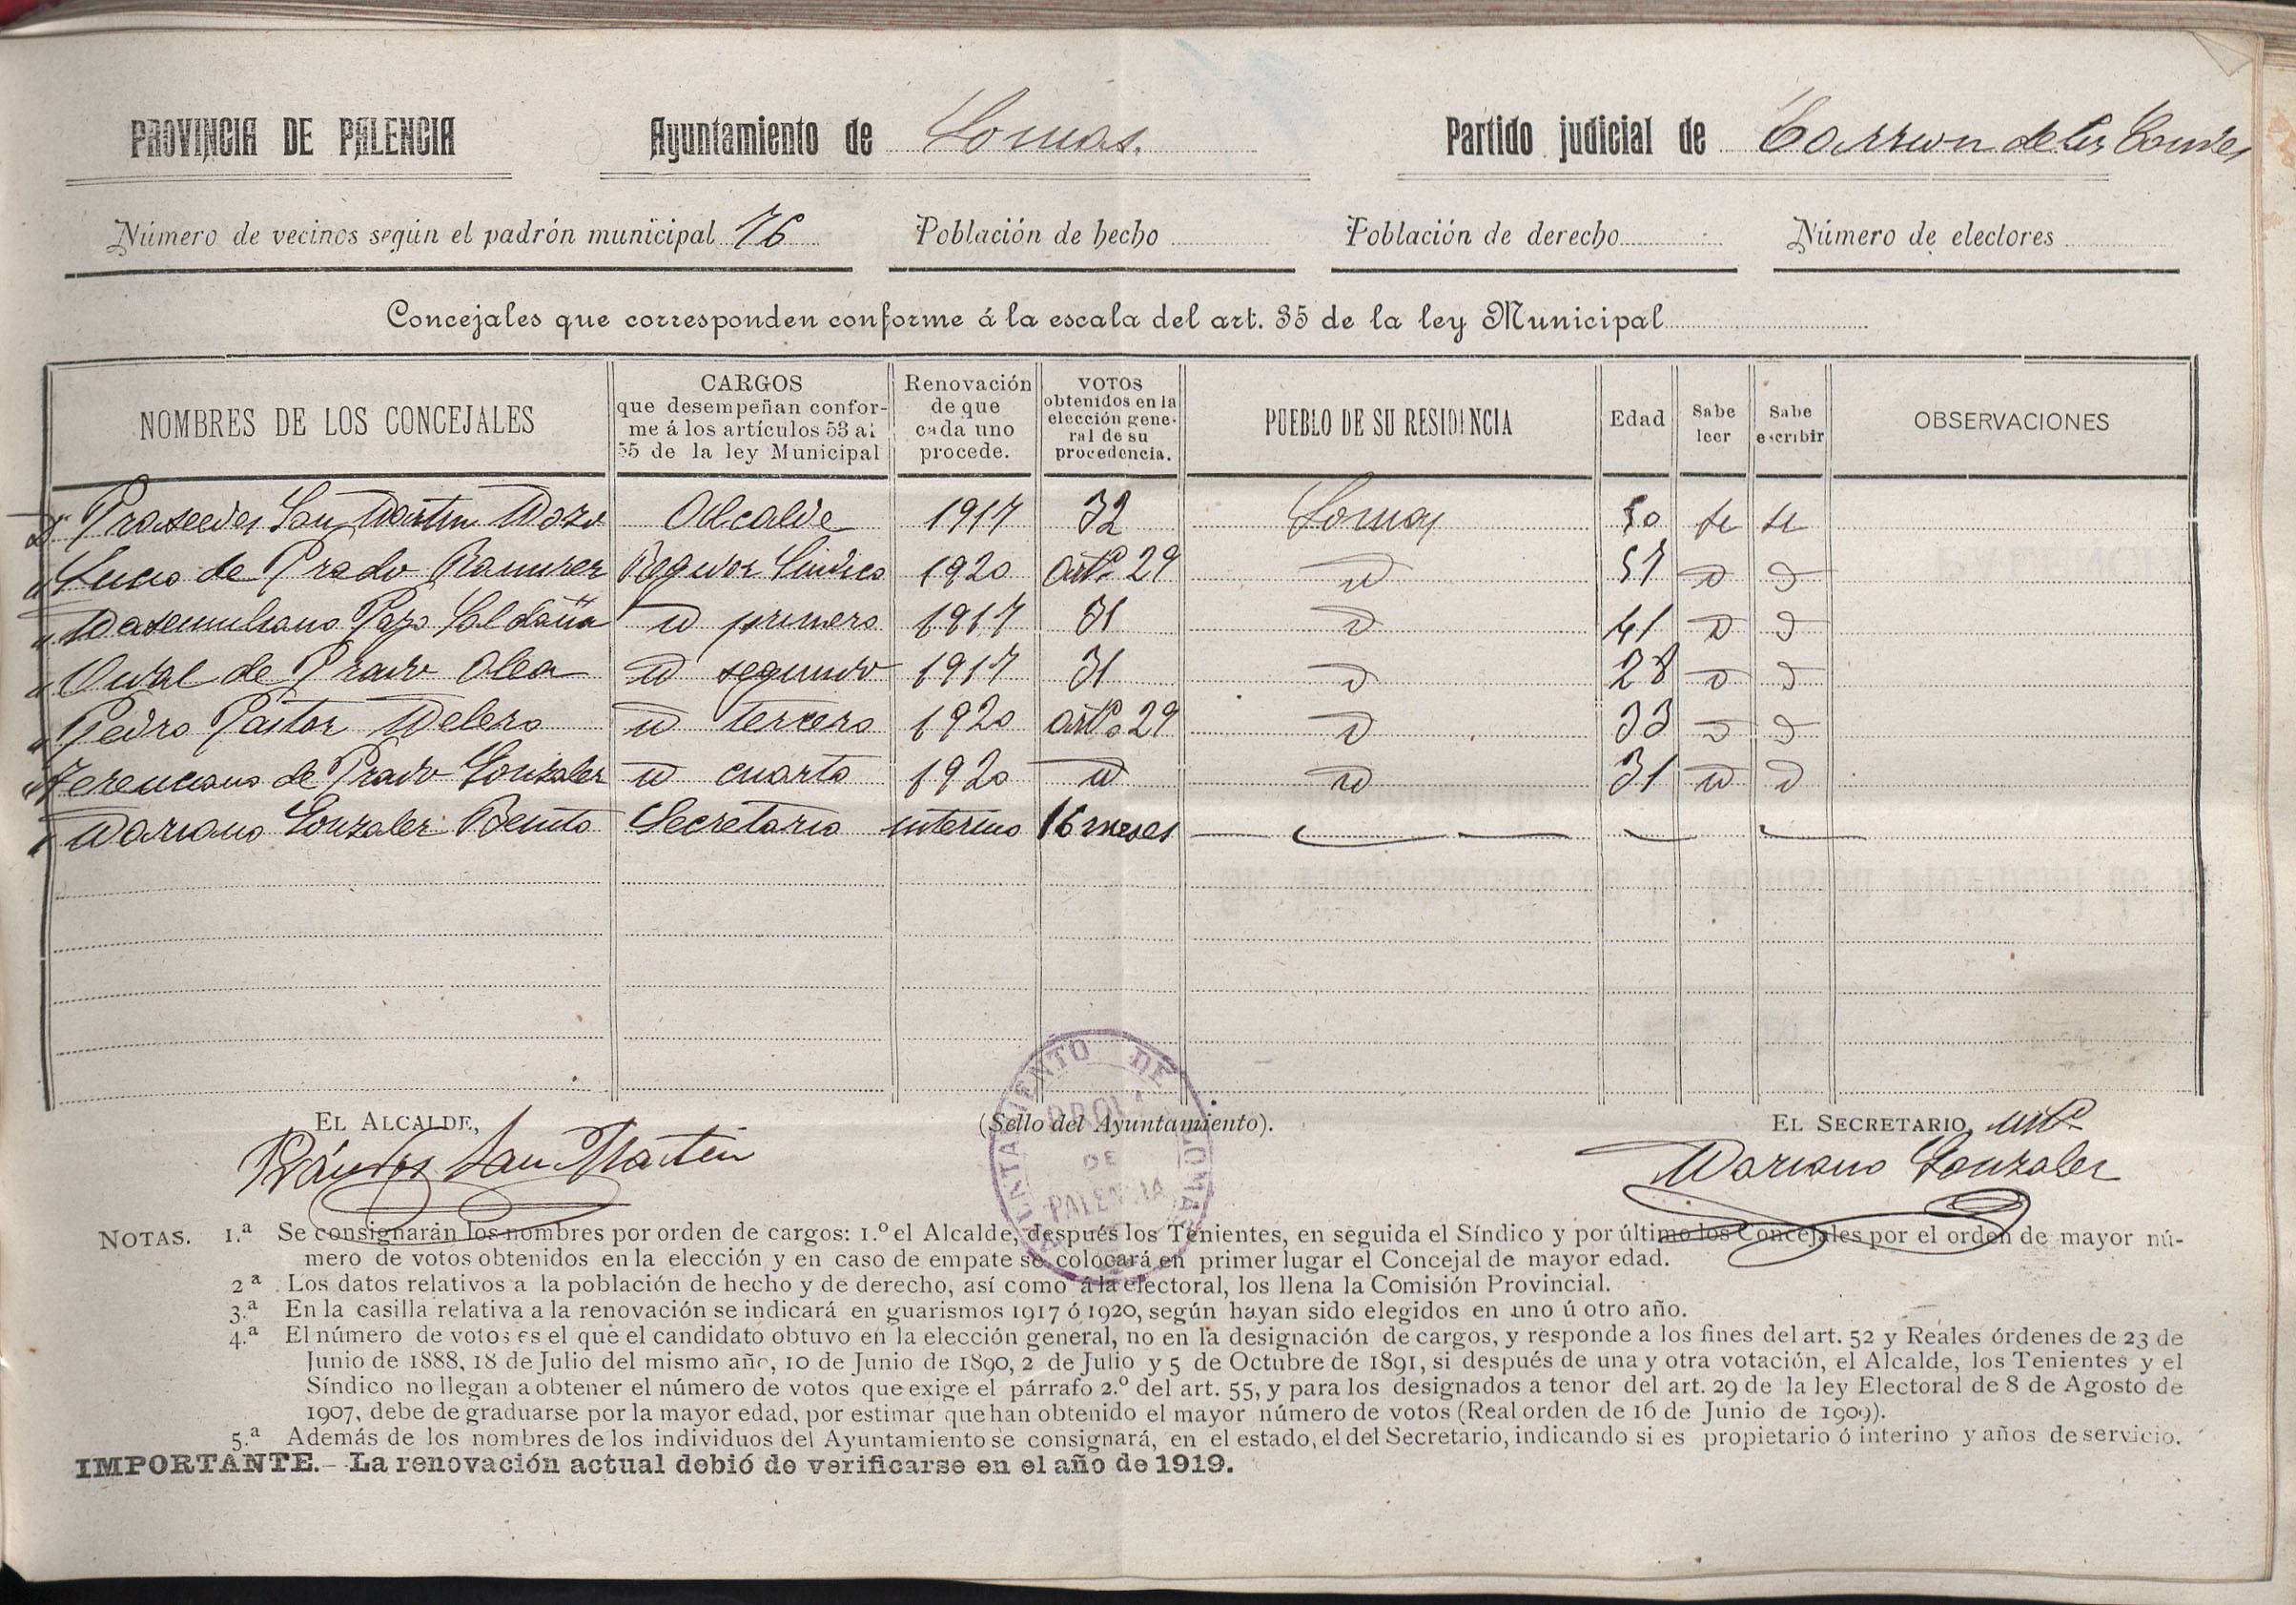 PROVINCIA DE PALENCIA Ayuntamiento de Lomas. Partido judicial de Carrion de los Condes
Número de vecinos según el padrón municipal 76 Población de hecho Población de derecho Número de electores
Concejales que corresponden conforme á la escala del art. 35 de la ley Municipal
NOMBRES DE LOS CONCEJALES CARGOS que desempeñan conforme á los artículos 53 al 55 de la ley Municipal Renovación de que cada uno procede. VOTOS obtenidos en la elección general de su procedencia. PUEBLO DE SU RESIDENCIA Edad Sabe leer Sabe escribir OBSERVACIONES
Dn Praxedes San Martin Alcalde 1917 32 Lomas 50 si si
" Lucio de Prado Ramirez Regidor Sindico 1920 artº 29 id 57 id id
" Maximiliano Pozo Saldaña id primero 1917 31 id 41 id id
" Vidal de Prado Olea id segundo 1917 31 id 28 id id
" Pedro Pastor Melero id tercero 1920 artº 29 id 33 id id
" Terenciano de Prado Gonzalez id cuarto 1920 id id 31 id id
" Mariano Gonzalez Benito Secretario interino 16 meses
EL ALCALDE, (Sello del Ayuntamiento). EL SECRETARIO, intº
San Martin Mariano Gonzalez
AYUNTAMIENTO DE LOMAS
PROVª DE PALENCIA
NOTAS. 1.ª Se consignarán los nombres por orden de cargos: 1.º el Alcalde, después los Tenientes, en seguida el Síndico y por último los Concejales por el orden de mayor nú-
mero de votos obtenidos en la elección y en caso de empate se colocará en primer lugar el Concejal de mayor edad.
2ª Los datos relativos a la población de hecho y de derecho, así como á la electoral, los llena la Comisión Provincial.
3.ª En la casilla relativa a la renovación se indicará en guarismos 1917 ó 1920, según hayan sido elegidos en uno ú otro año.
4.ª El número de votos es el que el candidato obtuvo en la elección general, no en la designación de cargos, y responde a los fines del art. 52 y Reales órdenes de 23 de
Junio de 1888, 18 de Julio del mismo año, 10 de Junio de 1890, 2 de Julio y 5 de Octubre de 1891, si después de una y otra votación, el Alcalde, los Tenientes y el
Síndico no llegan a obtener el número de votos que exige el párrafo 2.º del art. 55, y para los designados a tenor del art. 29 de la ley Electoral de 8 de Agosto de
1907, debe de graduarse por la mayor edad, por estimar que han obtenido el mayor número de votos (Real orden de 16 de Junio de 1909).
5.ª Además de los nombres de los individuos del Ayuntamiento se consignará, en el estado, el del Secretario, indicando si es propietario ó interino y años de servicio.
IMPORTANTE.- La renovación actual debió de verificarse en el año de 1919.